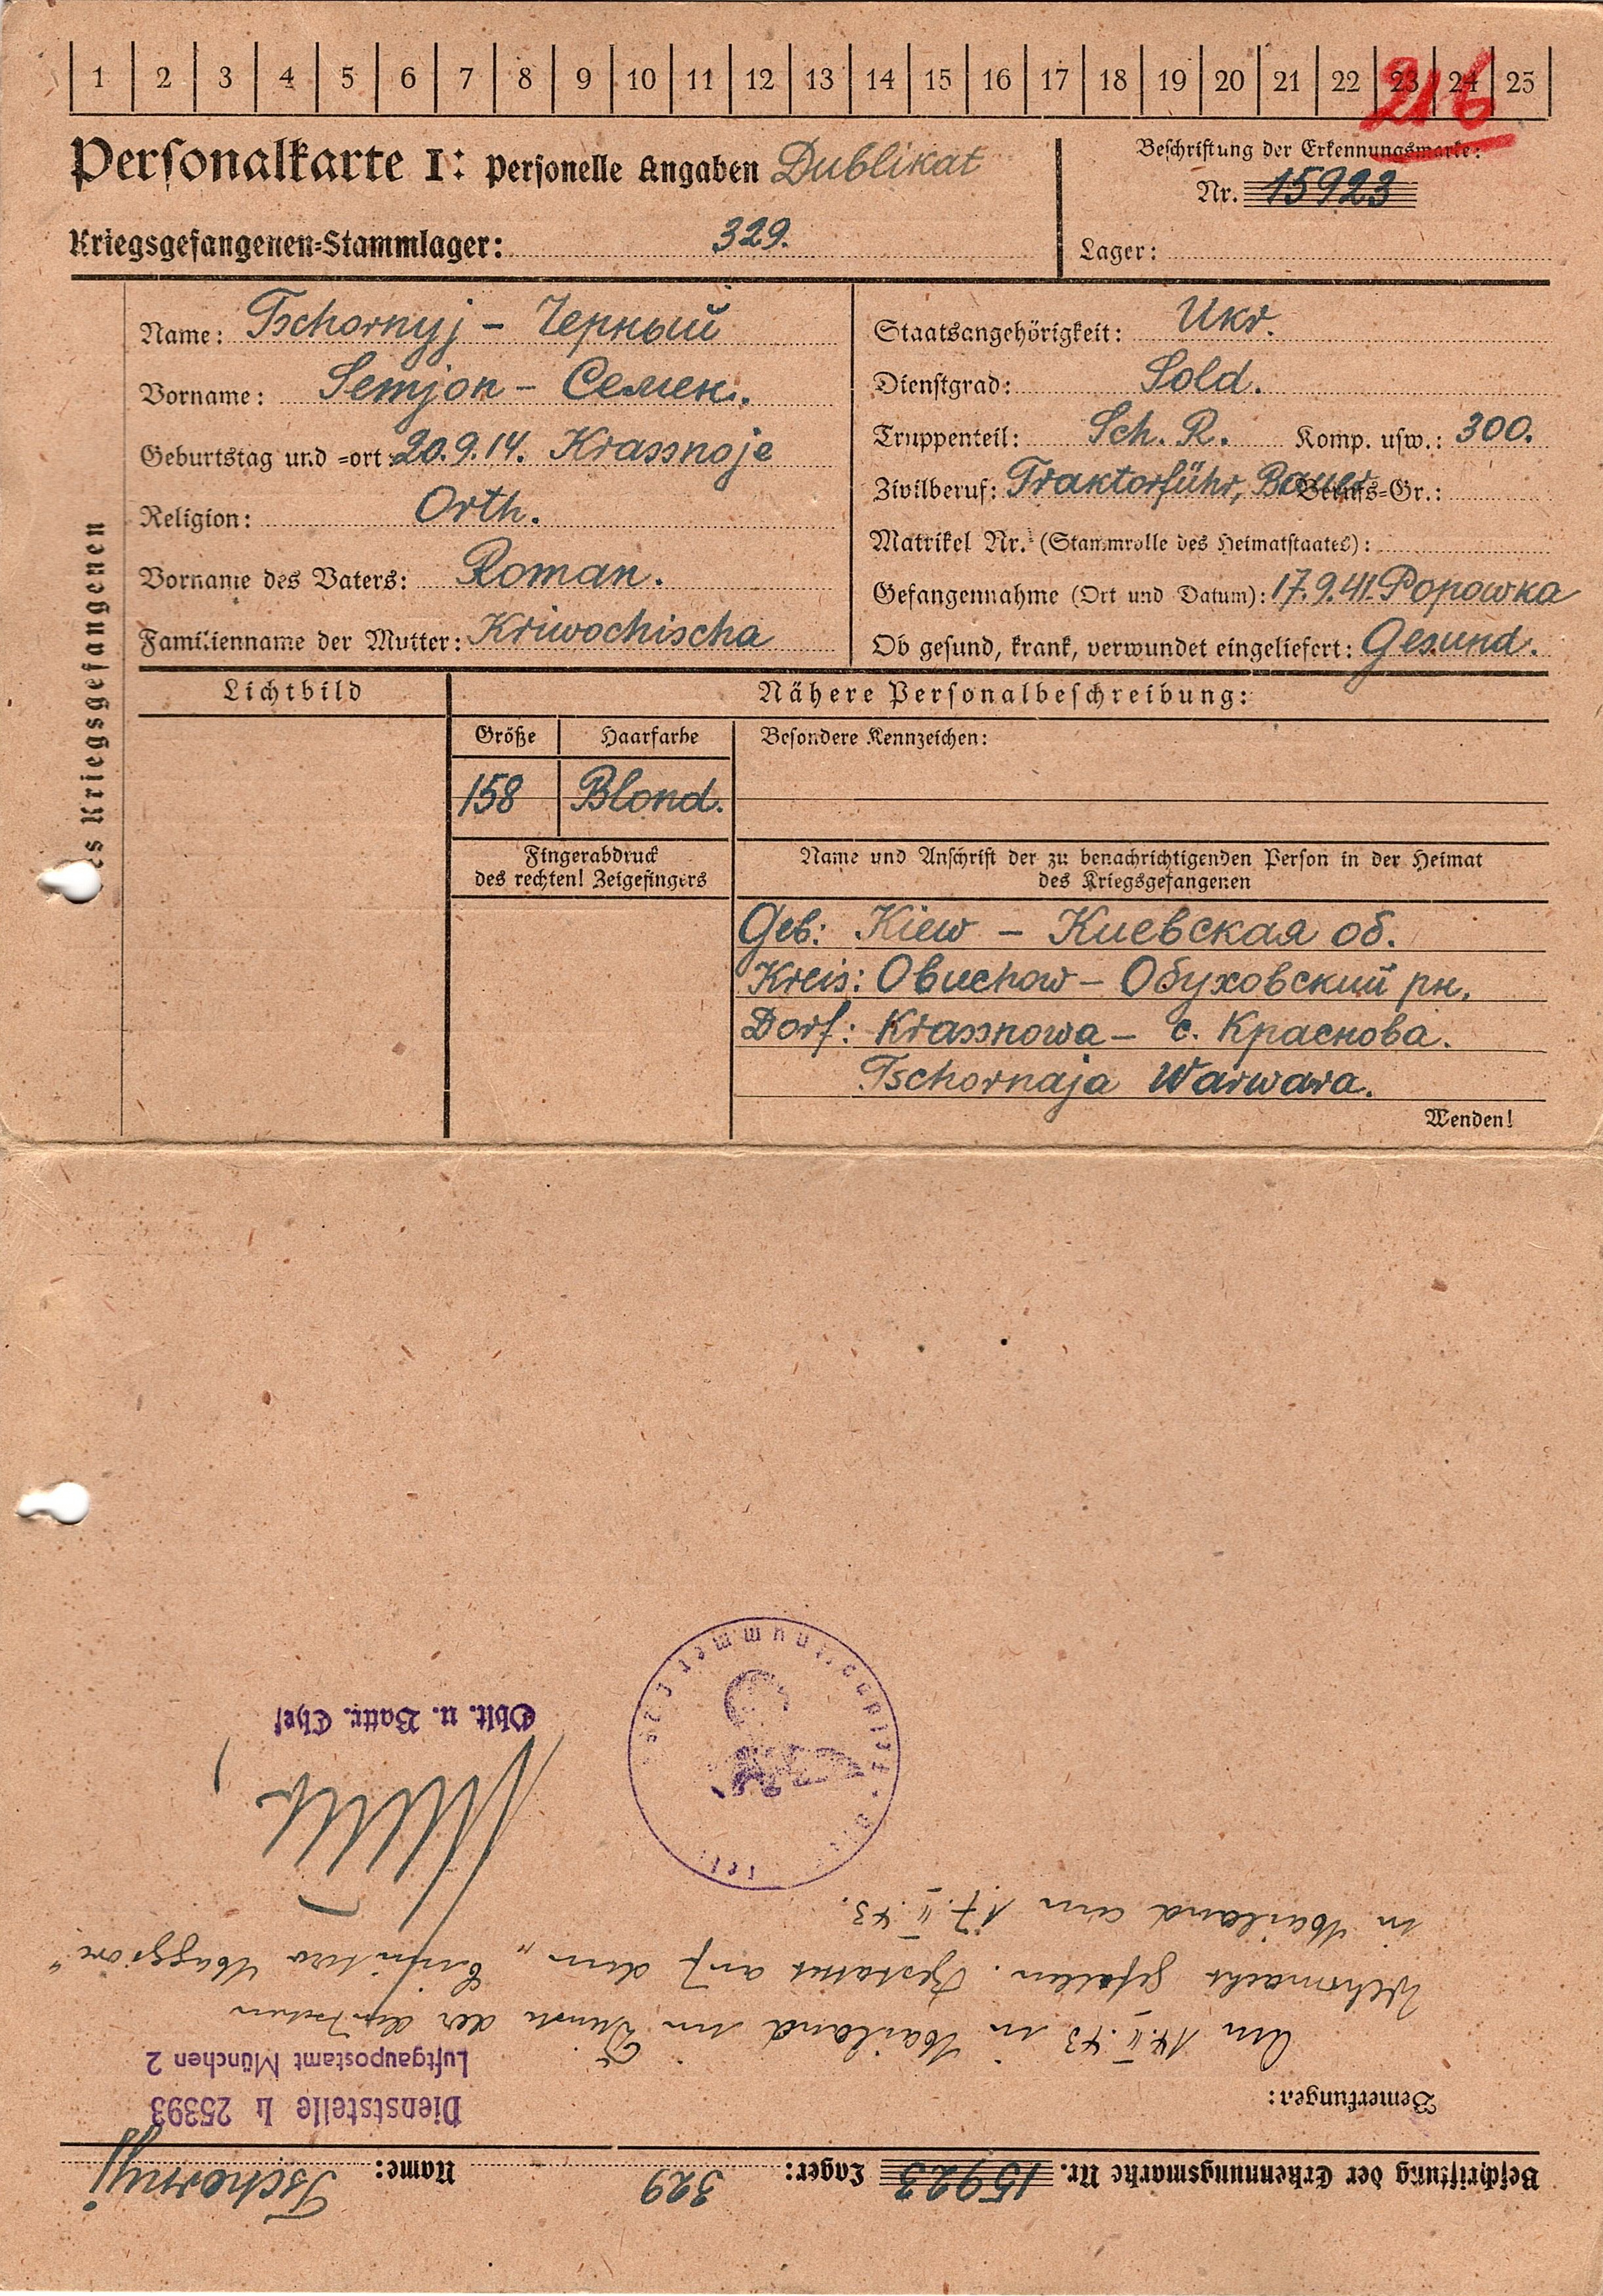 1 2 3 4 5 6 7 8 9 10 11 12 13 14 15 16 17 18 19 20 21 22 23 24 25
216
Personalkarte I: Personelle Angaben Dublikat
Beschriftung der Erkennungsmarke:
Nr. 15923
Kriegsgefangenen-Stammlager: 329.
Lager:
es Kriegsgefangenen
Name: Tschornyj - Черный
Vorname: Semjon - Семен.
Geburtstag und -ort: 20.9.14. Krassnoje
Religion: Orth.
Vorname des Vaters: Roman.
Familienname der Mutter: Kriwochischa
Staatsangehörigkeit: Ukr.
Dienstgrad: Sold.
Truppenteil: Sch. R. Komp. usw.: 300.
Zivilberuf: Traktorführ, Bauer Berufs-Gr.:
Matrikel Nr. (Stammrolle des Heimatstaates):
Gefangennahme (Ort und Datum): 17.9.41. Popowka
Ob gesund, krank, verwundet eingeliefert: Gesund.
Lichtbild
Nähere Personalbeschreibung:
Größe Haarfarbe Besondere Kennzeichen:
158 Blond.
Fingerabdruck
des rechten! Zeigefingers
Name und Anschrift der zu benachrichtigenden Person in der Heimat
des Kriegsgefangenen
Geb: Kiew - Киевская об.
Kreis: Obuchow - Обуховский рн.
Dorf: Krassnowa - с. Краснова.
Tschornaja Warwara.
Wenden!
Beschriftung der Erkennungsmarke Nr. 15923 Lager: 329 Name: Tschornyj
Bemerkungen:
Dienststelle L 25393
Luftgaupostamt München 2
Am 14.II.43 in Mailand im Dienste der deutschen
Wehrmacht gefallen. Bestattet auf dem „Cimitero Maggiore"
in Mailand am 17.II.43.
Oblt. u. Battr. Chef